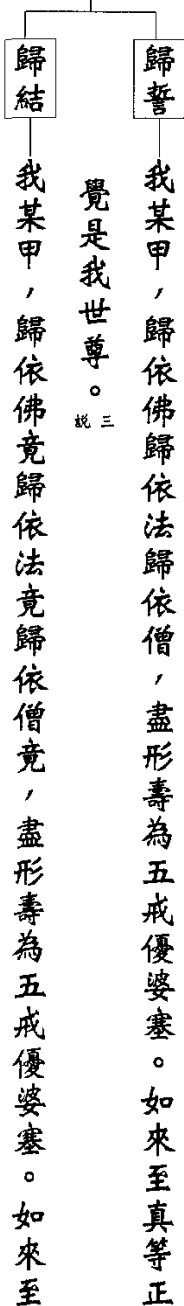 歸誓
我某甲，歸依佛歸依法歸依僧，盡形壽為五戒優婆塞。如來至真等正
覺是我世尊。三說
歸結
我某甲，歸依佛竟歸依法竟歸依僧竟，盡形壽為五戒優婆塞。如來至